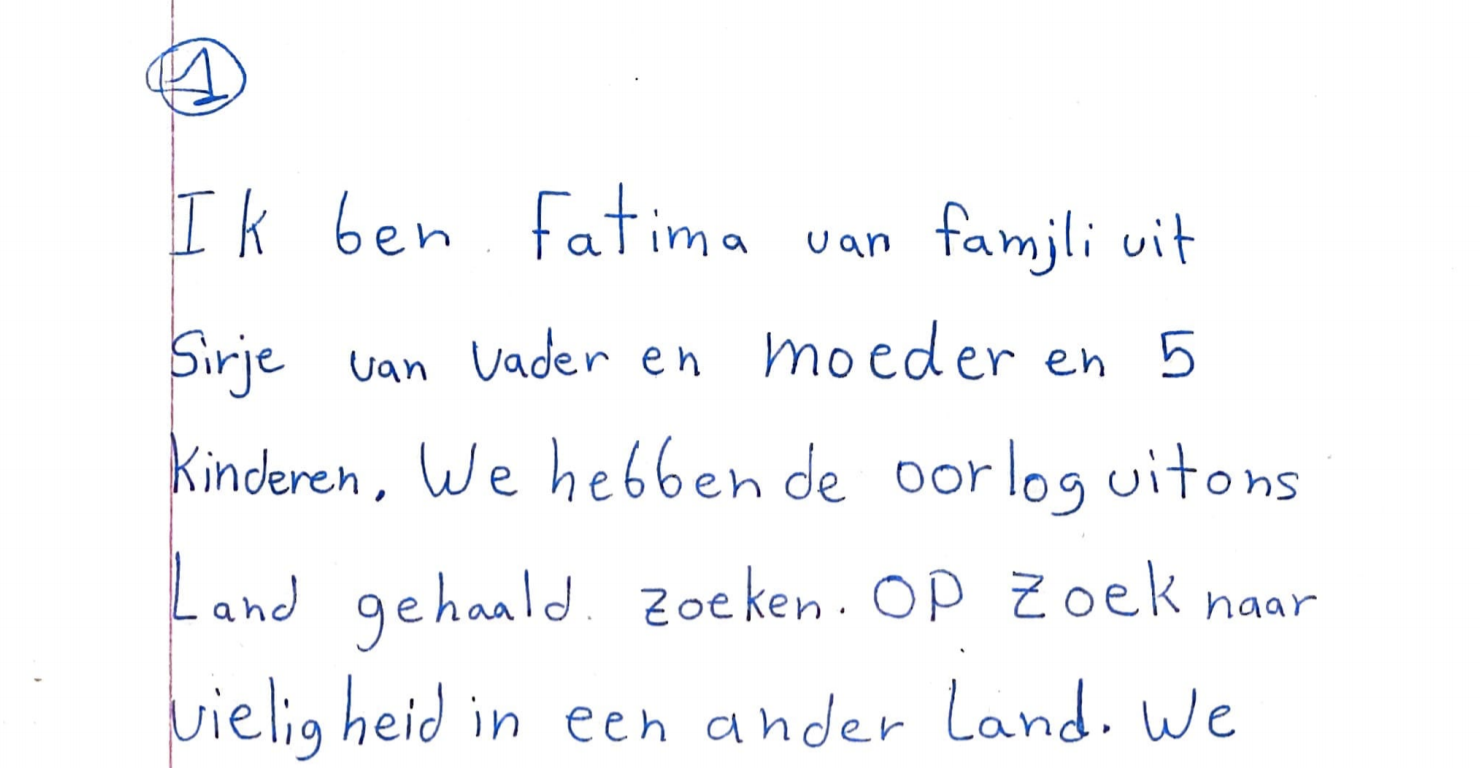 1
Ik ben Fatima van famjli uit
Sirje van Vader en moeder en 5
Kinderen. We hebben de oorlog uit ons
Land gehaald. zoeken. OP Zoek naar
vieligheid in een ander Land. We